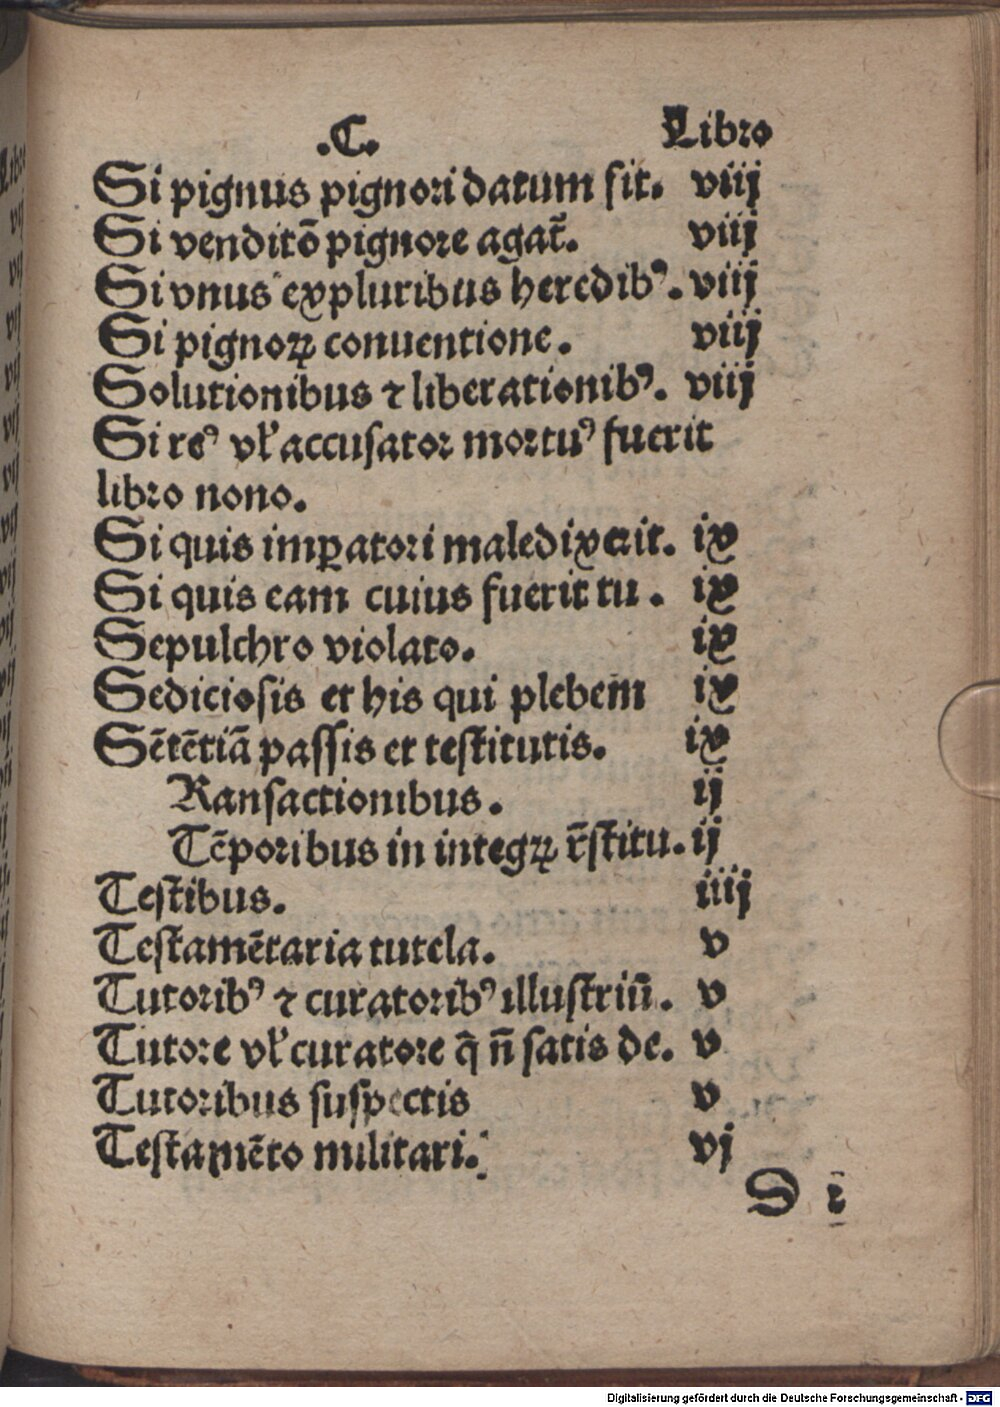 .C. Libro
Si pignus pignori datum sit. viij
Si venditō pignore agat̄. viij
Si vnus expluribus heredibꝰ. viij
Si pignoꝝ conuentione. viij
Solutionibus ⁊ liberationibꝰ. viij
Si reꝰ vł accusator mortuꝰ fuerit
libro nono.
Si quis imꝑatori maledixerit. ix
Si quis eam cuius fuerit tu. ix
Sepulchro violato. ix
Sediciosis et his qui plebem ix
Sētētiā passis et testitutis. ix
Ransactionibus. ij
Tēporibus in integꝝ r̄stitu. ij
Testibus. iiij
Testamētaria tutela. v
Tutoribꝰ ⁊ curatoribꝰ illustriū. v
Tutore vł curatore q̄ n̄ satis de. v
Tutoribus suspectis v
Testamēto militari. vj
D i
Digitalisierung gefördert durch die Deutsche Forschungsgemeinschaft - DFG